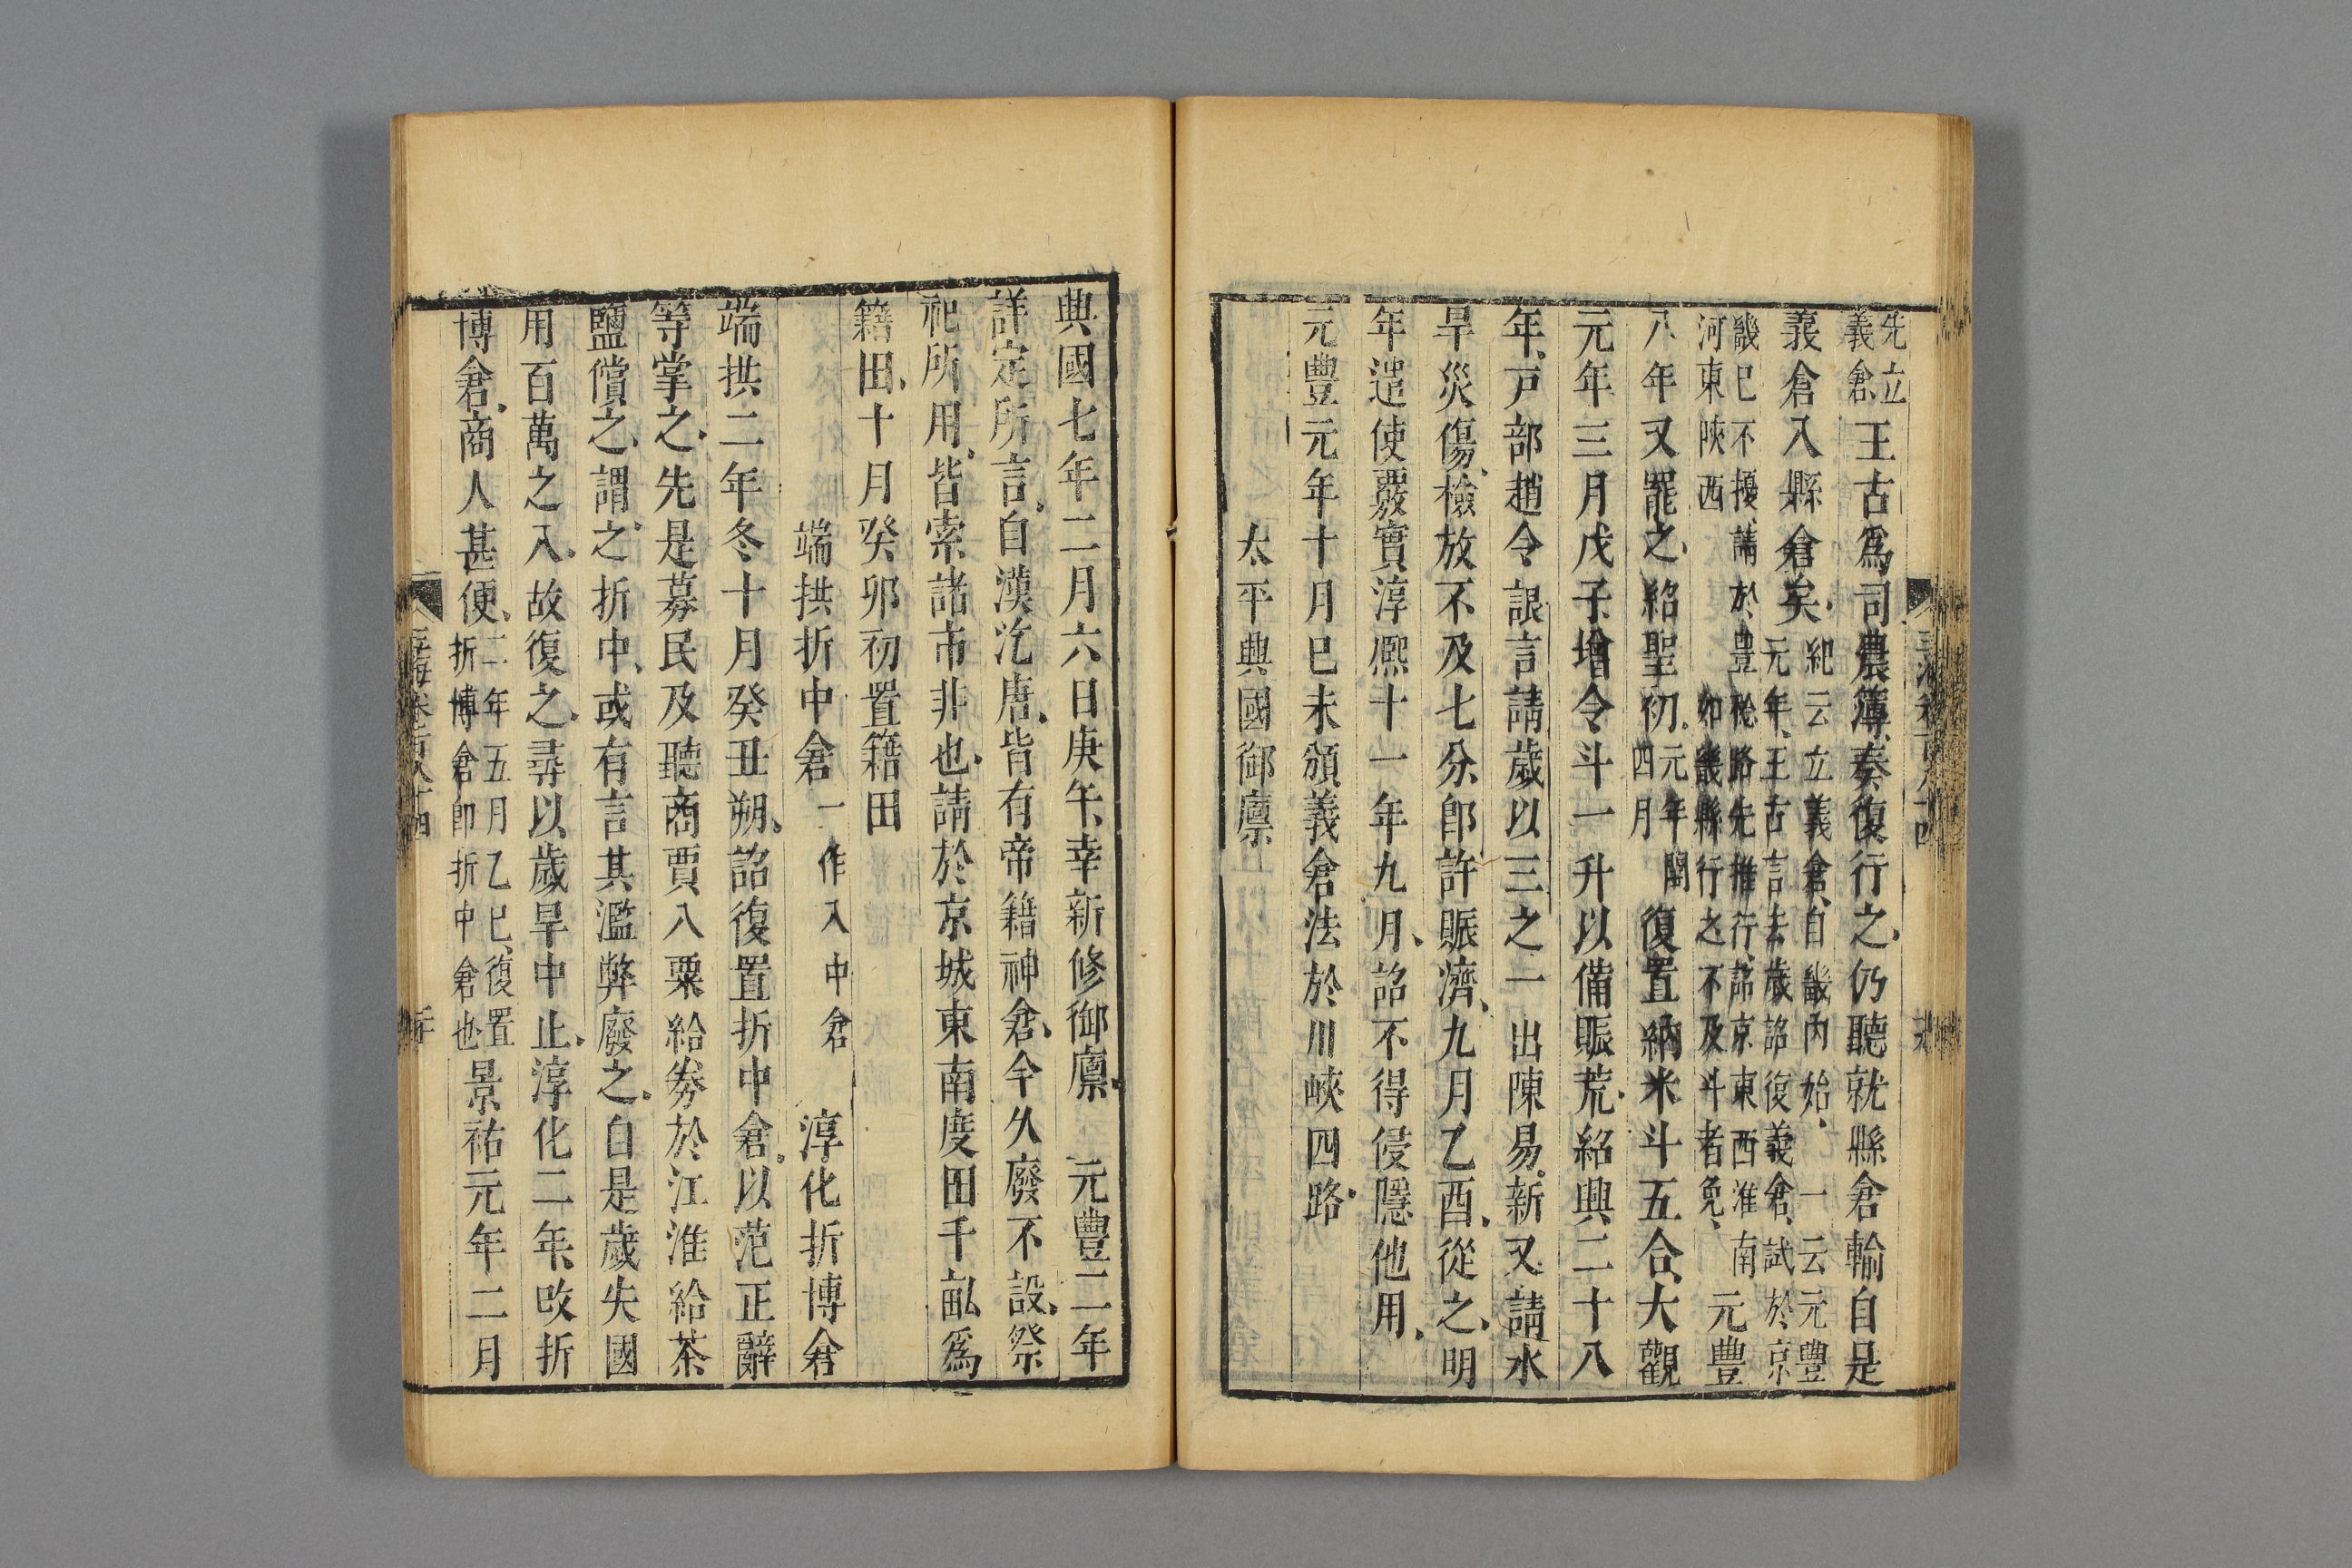 先立
義倉
王古爲司農簿奏復行之仍聽就縣倉輸自是
義倉入縣倉矣
紀云立義倉自畿内始一云元豐
元年王古言去歲詔復義倉試於京
畿已不擾請於豐稔路先推行詔京東西淮南
河東陝西如畿縣行之不及斗者免
元豐
八年又罷之紹聖初
元年閏
四月
復置納米斗五合大觀
元年三月戊子增令斗一升以備賑荒紹興二十八
年戸部趙令詪言請歲以三之一出陳易新又請水
旱災傷檢放不及七分卽許賑濟九月乙酉從之明
年遣使覈實淳熈十一年九月詔不得侵隱他用
元豐元年十月巳未頒義倉法於川峽四路
太平興國御廪
興國七年二月六日庚午幸新修御廪 元豐二年
詳定所言自漢迄唐皆有帝籍神倉今久廢不設祭
祀所用皆索諸市非也請於京城東南度田千畝爲
籍田十月癸卯初置籍田
端拱折中倉
一作入中倉
淳化折博倉
端拱二年冬十月癸丑朔詔復置折中倉以范正辭
等掌之先是募民及聽商賈入粟給劵於江淮給茶
鹽償之謂之折中或有言其濫弊廢之自是歲失國
用百萬之入故復之尋以歲旱中止淳化二年改折
博倉商人甚便
二年五月乙巳復置
折博倉卽折中倉也
景祐元年二月
玉海卷百八十四